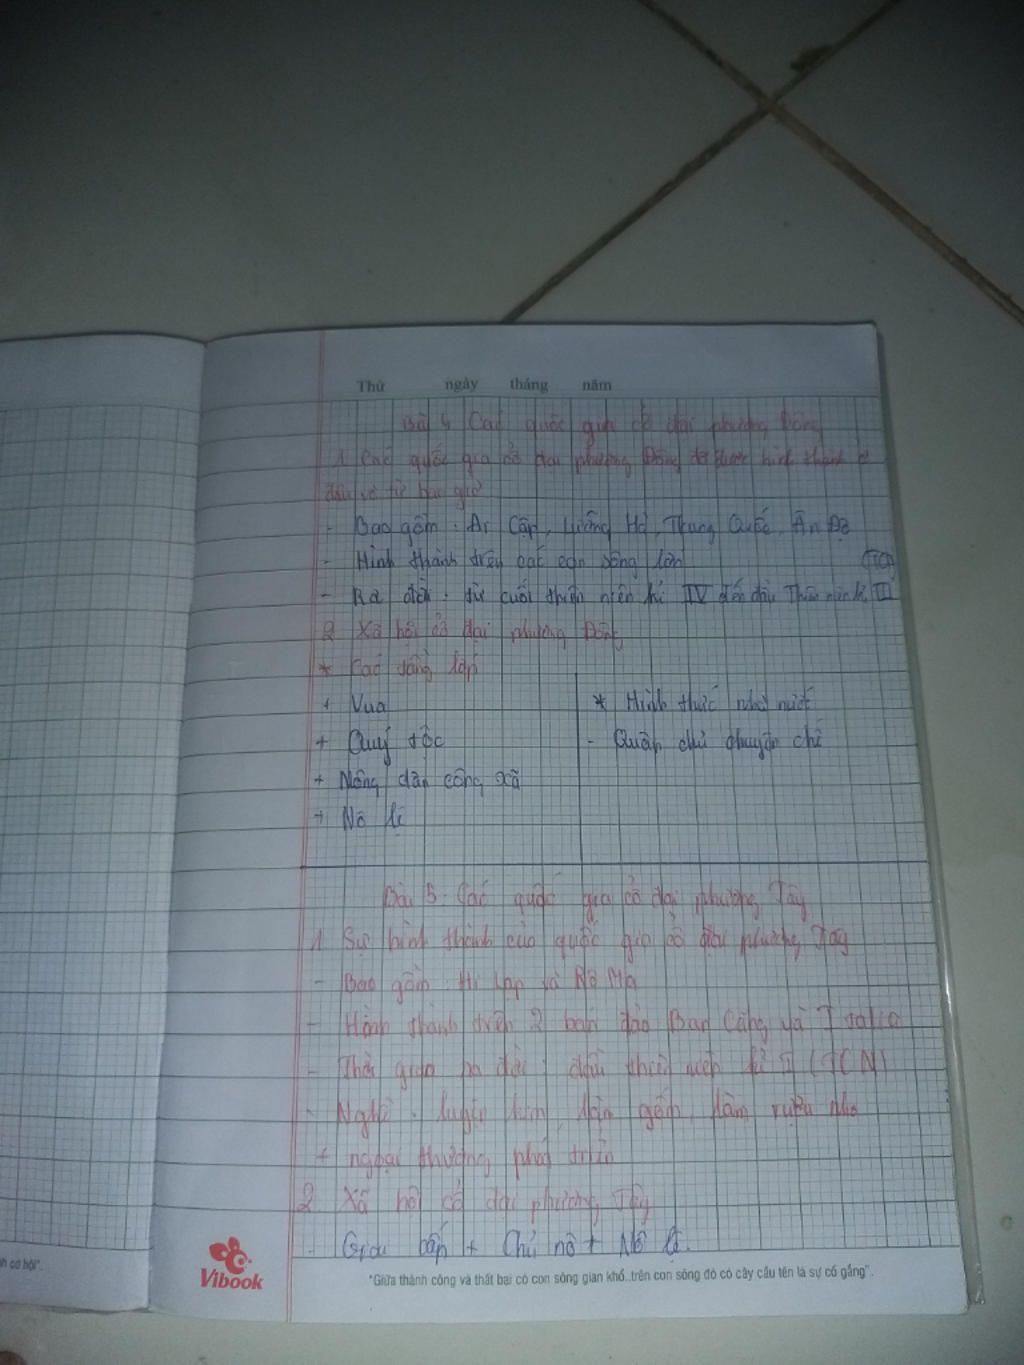 Thứ ngày tháng năm
Bài 4 Các quốc gia cổ đại phương Đông
1 Các quốc gia cổ đại phương Đông đã được hình thành ở
đâu và từ bao giờ
- Bao gồm: Ai Cập, Lưỡng Hà, Trung Quốc, Ấn Độ
- Hình thành trên các con sông lớn
- Ra đời: từ cuối thiên niên kỉ IV đến đầu Thiên niên kỉ III (TCN)
2 Xã hội cổ đại phương Đông
* Các tầng lớp
+ Vua
+ Quý tộc
+ Nông dân công xã
+ Nô lệ
* Hình thức nhà nước
- Quân chủ chuyên chế
Bài 5. Các quốc gia cổ đại phương Tây
1 Sự hình thành của quốc gia cổ đại phương Tây
- Bao gồm: Hi Lạp và Rô Ma
- Hình thành trên 2 bán đảo Ban Căng và Italia
- Thời gian ra đời: đầu thiên niên kỉ I (TCN)
- Nghề: luyện kim, làm gốm, làm rượu nho
+ ngoại thương phát triển
2 Xã hội cổ đại phương Tây
- Giai cấp + Chủ nô + Nô lệ.
h cơ hội".
Vibook
"Giữa thành công và thất bại có con sông gian khổ..trên con sông đó có cây cầu tên là sự cố gắng".